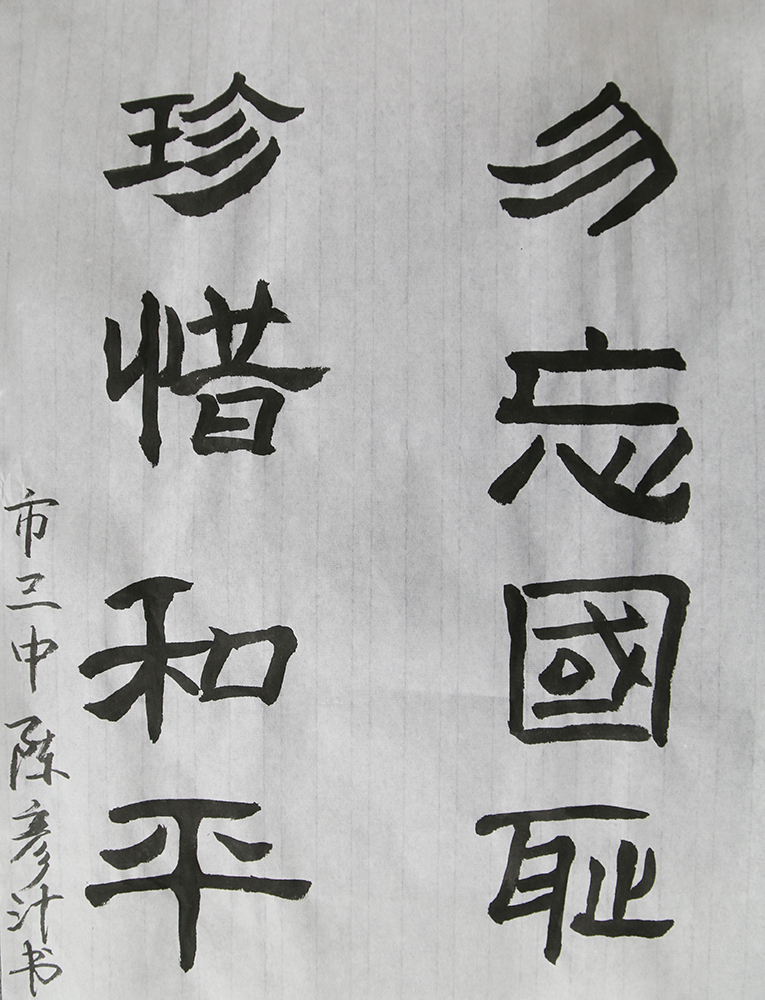 勿忘國耻
珍惜和平
市三中陈彦汁书